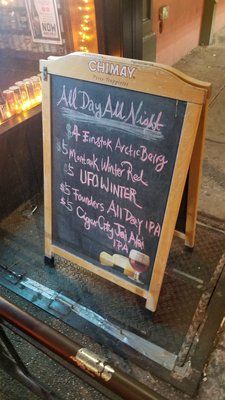 NOW
CHIMAY
Pères Trappistes
All Day All Night
$4 Einstok Arctic Berry
$5 Montauk Winter Red
$5 UFO WINTER
$5 Founders All Day IPA
$5 Cigar City Jai Alai
IPA